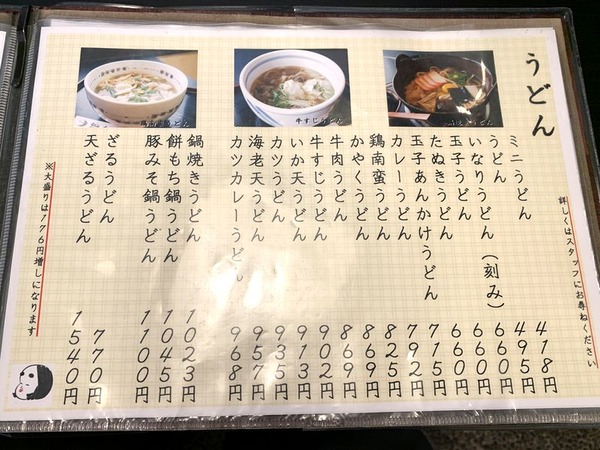 うどん
詳しくはスタッフにお尋ねください
ミニうどん 418円
うどん 495円
いなりうどん（刻み） 660円
玉子うどん 660円
たぬきうどん 660円
玉子あんかけうどん 715円
カレーうどん 792円
鶏南蛮うどん 825円
かやくうどん 869円
牛肉うどん 869円
牛すじうどん 902円
いか天うどん 913円
カツうどん 935円
海老天うどん 957円
カツカレーうどん 968円
鍋焼きうどん 1023円
餅もち鍋うどん 1045円
豚みそ鍋うどん 1100円
ざるうどん 770円
天ざるうどん 1540円
※大盛りは176円増しになります
牛すじうどん